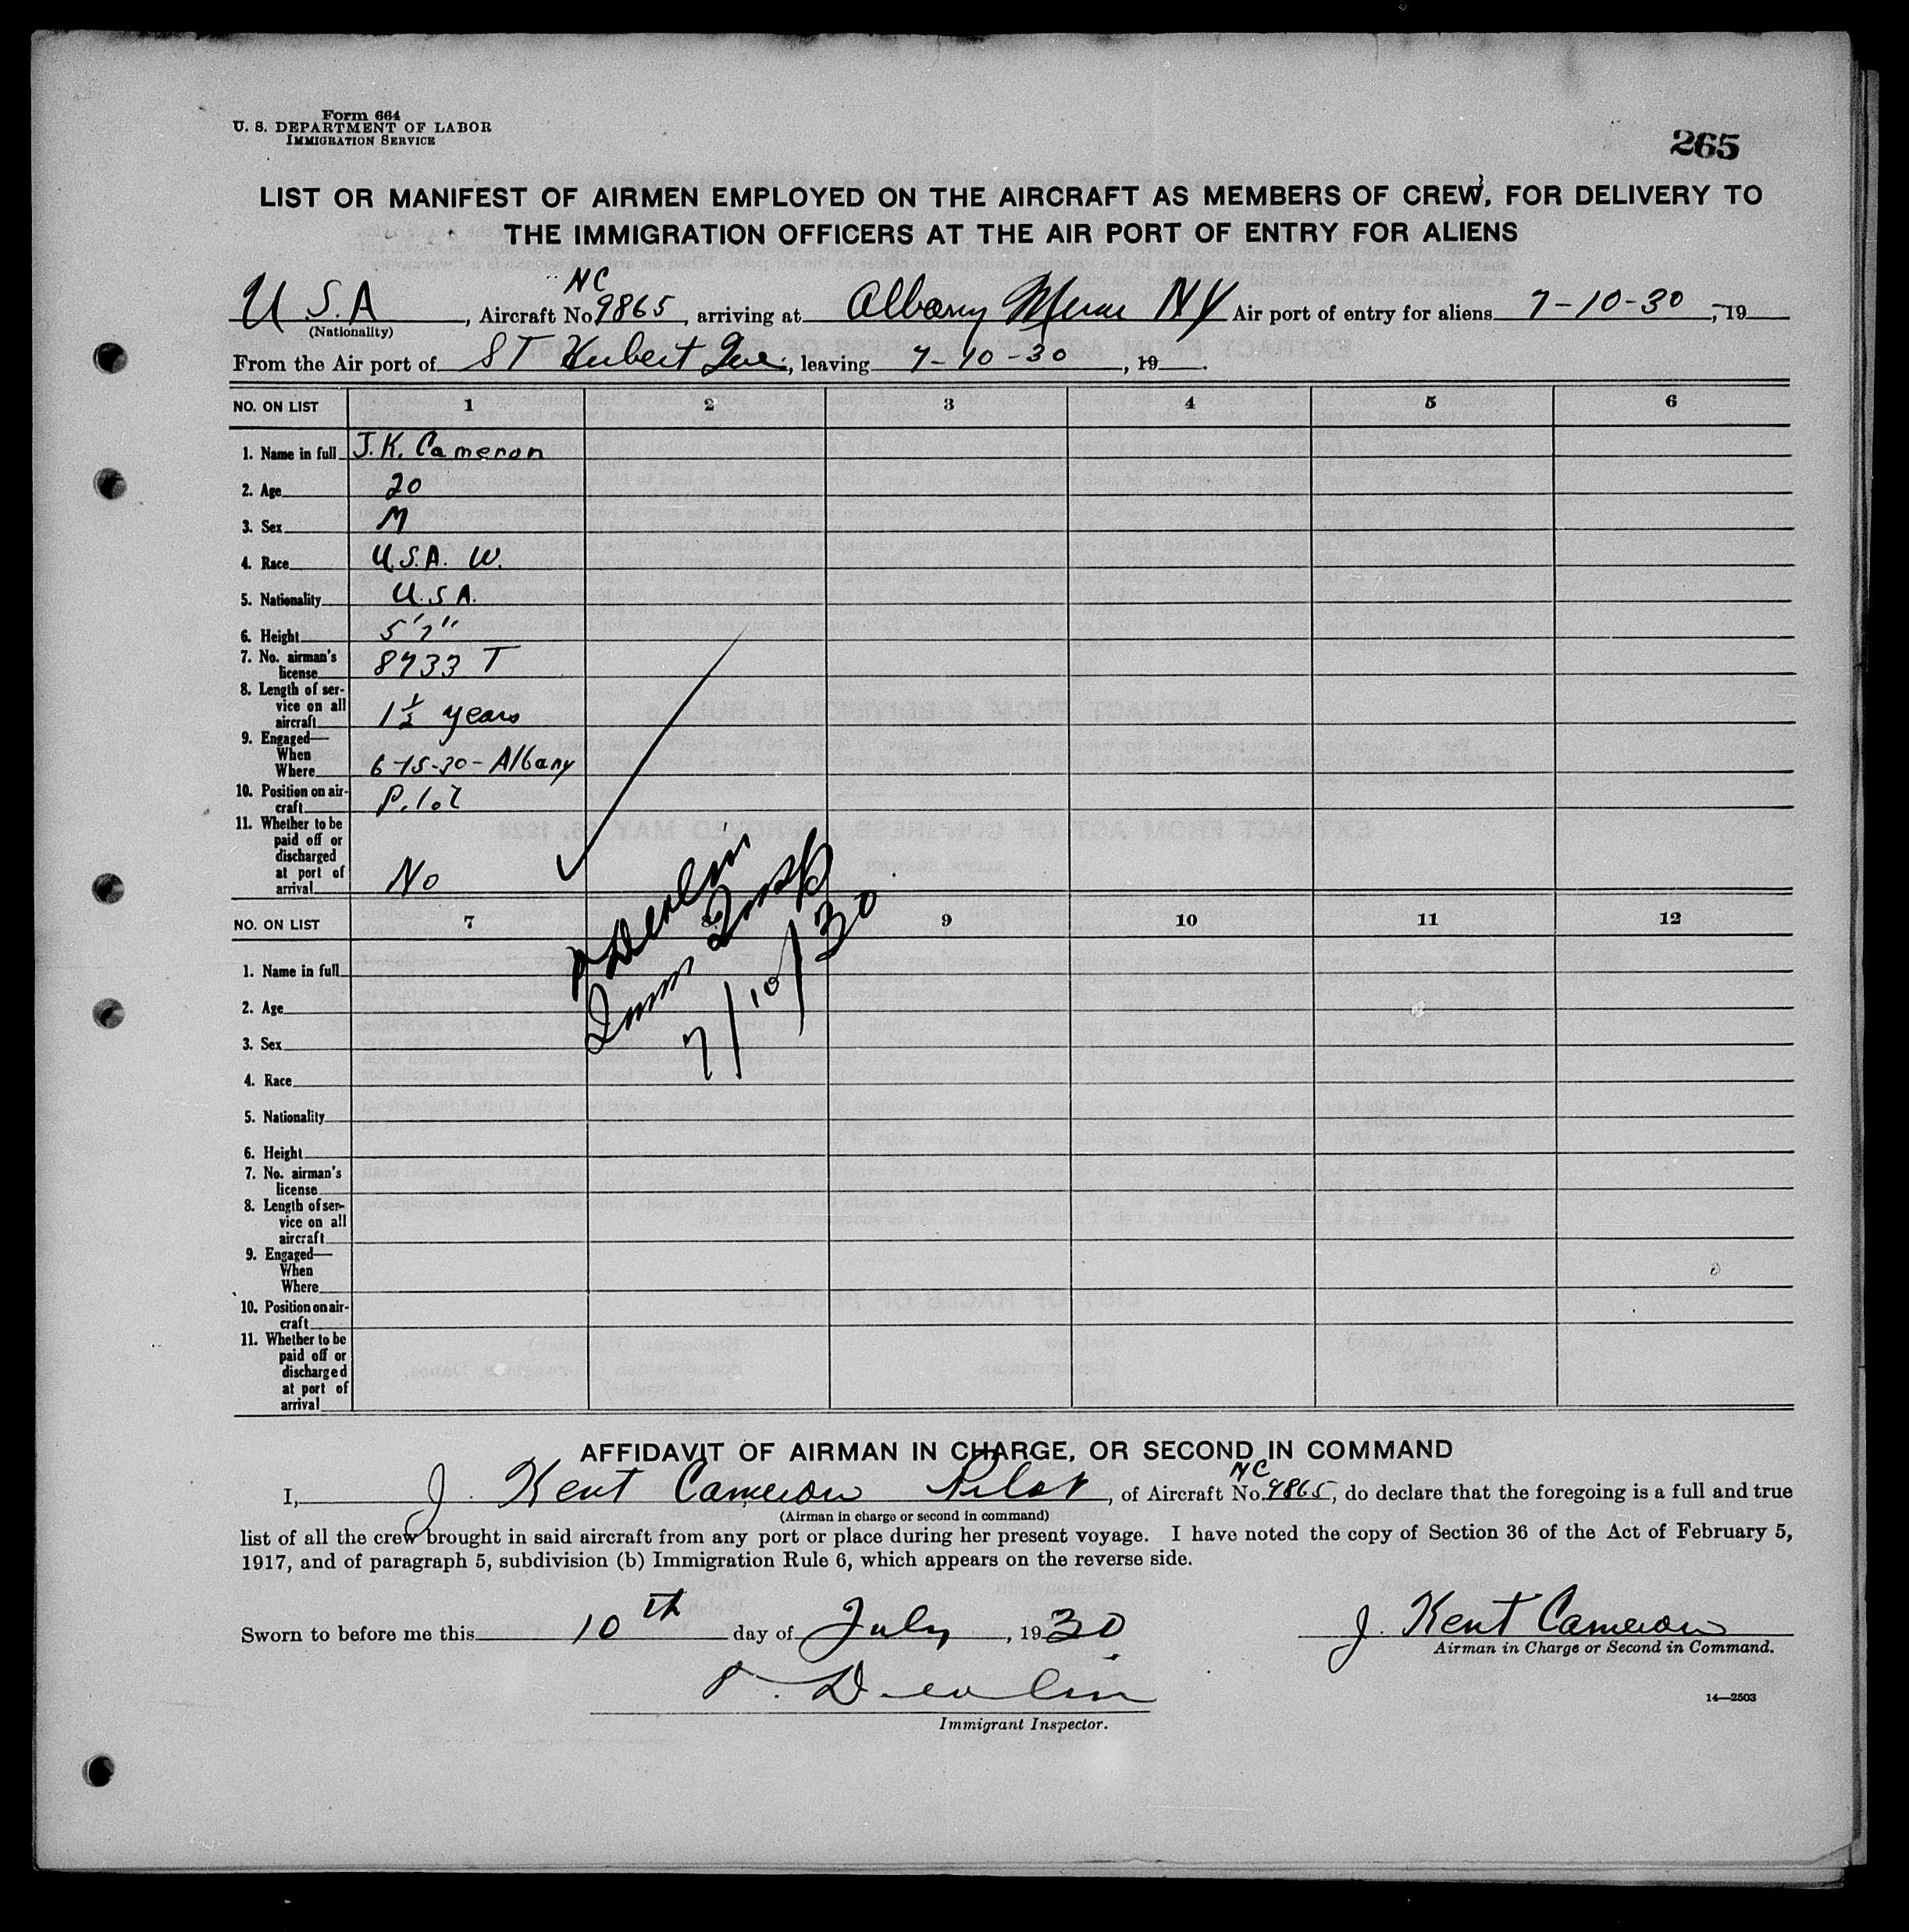 Form 664
U. S. DEPARTMENT OF LABOR
IMMIGRATION SERVICE
265
LIST OR MANIFEST OF AIRMEN EMPLOYED ON THE AIRCRAFT AS MEMBERS OF CREW, FOR DELIVERY TO
THE IMMIGRATION OFFICERS AT THE AIR PORT OF ENTRY FOR ALIENS
U.S.A, Aircraft No. NC 9865, arriving at Albany NY Air port of entry for aliens 7-10-30, 19
(Nationality)
From the Air port of ST Hubert Que., leaving 7-10-30, 19.
NO. ON LIST 1 2 3 4 5 6
1. Name in full J.K. Cameron
2. Age 20
3. Sex M
4. Race U.S.A. W.
5. Nationality U.S.A.
6. Height 5'7"
7. No. airman's
license 8733 T
8. Length of ser-
vice on all
aircraft 1½ years
9. Engaged—
When
Where 6-15-30-Albany
10. Position on air-
craft Pilot
11. Whether to be
paid off or
discharged
at port of
arrival No
Devlin
Imm Insp
7/10/30
NO. ON LIST 7 8 9 10 11 12
1. Name in full
2. Age
3. Sex
4. Race
5. Nationality
6. Height
7. No. airman's
license
8. Length of ser-
vice on all
aircraft
9. Engaged—
When
Where
10. Position on air-
craft
11. Whether to be
paid off or
discharged
at port of
arrival
AFFIDAVIT OF AIRMAN IN CHARGE, OR SECOND IN COMMAND
I, J. Kent Cameron Pilot, of Aircraft No. NC 9865, do declare that the foregoing is a full and true
(Airman in charge or second in command)
list of all the crew brought in said aircraft from any port or place during her present voyage. I have noted the copy of Section 36 of the Act of February 5,
1917, and of paragraph 5, subdivision (b) Immigration Rule 6, which appears on the reverse side.
Sworn to before me this 10th day of July, 1930
J. Kent Cameron
Airman in Charge or Second in Command.
Devlin
Immigrant Inspector.
14—2503